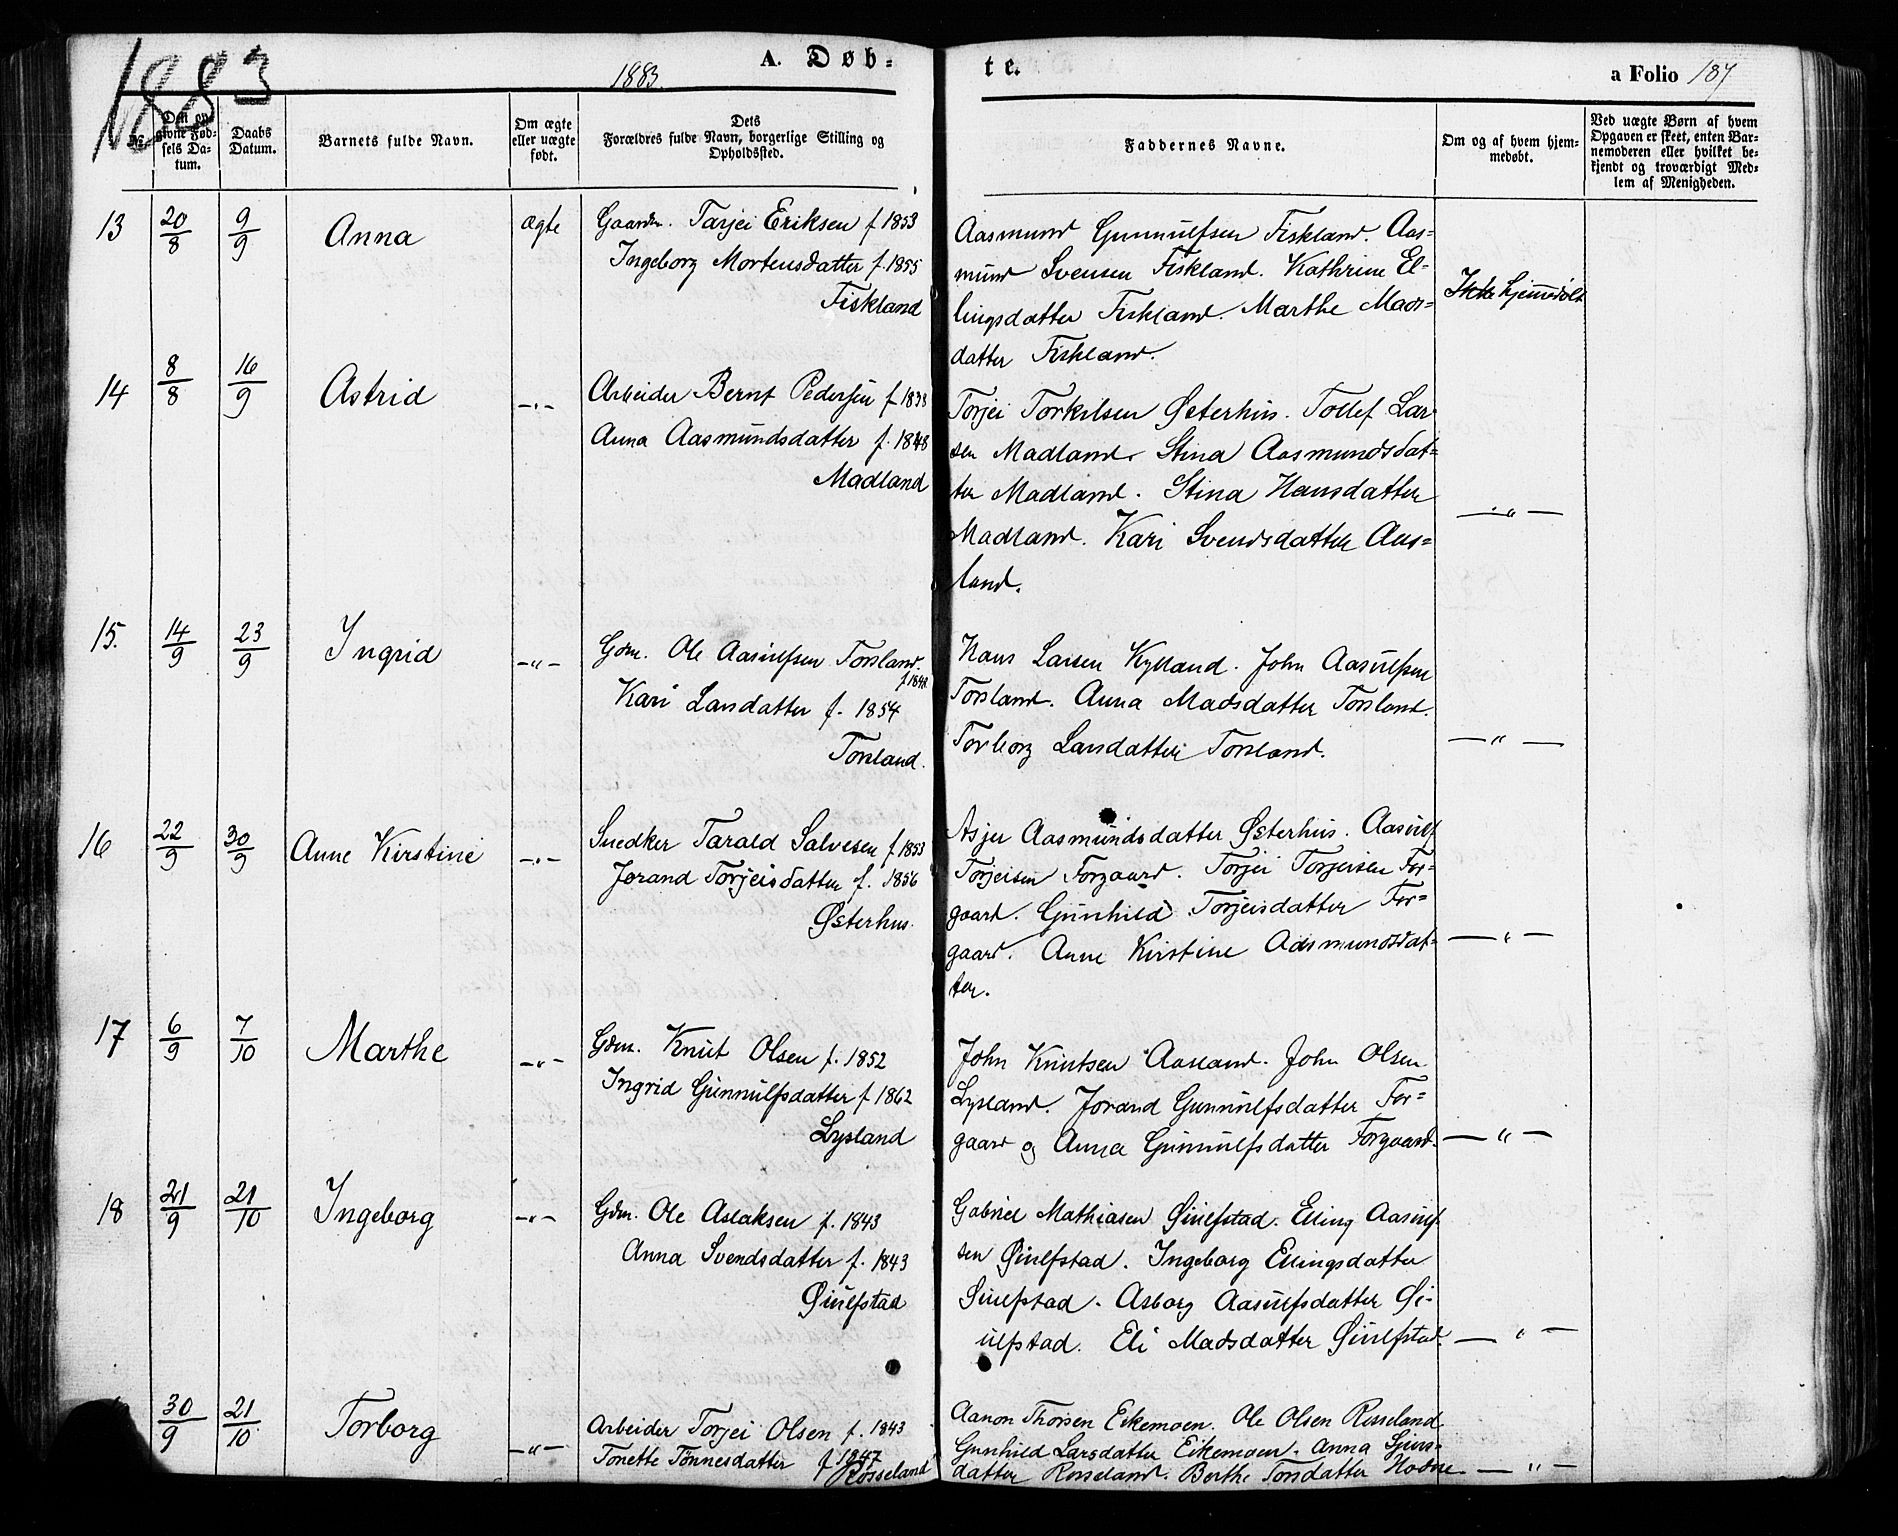 1883
1883.
A. Døb-
te.
a Folio 187
No.
Den opgivne Fød-
sels Da-
tum.
Daabs
Datum.
Barnets fulde Navn.
Om ægte
eller uægte
født.
Dets
Forældres fulde Navn, borgerlige Stilling og
Opholdssted.
Faddernes Navne.
Om og af hvem hjem-
medøbt.
Ved uægte Børn af hvem
Opgaven er skeet, enten Bar-
nemoderen eller hvilket be-
kjendt og troværdigt Med-
lem af Menigheden.
13
20/8
9/9
Anna
Ægte
Gaardm. Tarjei Eriksen f 1853
Ingeborg Mortensdatter f. 1855
Fiskland
Aasmund Gunnulfsen Fiskland. Aas=
mund Svensen Fiskland. Kathrine El=
lingsdatter Fiskland. Marthe Mads=
datter Fiskland.
Ikke hjemmedøbt
14
8/8
16/9
Astrid
-"-
Arbeider Bernt Pedersen f 1838
Anna Aasmundsdatter f. 1848
Madland
Torjei Torkilsen Østerhus. Tollef Lar
sen Madland. Stina Aasmundsdat=
ter Madland. Stina Hansdatter
Madland. Kari Svendsdatter Aas=
land.
-"-
15.
14/9
23/9
Ingrid
-"-
Gdm. Ole Aasulfsen Torsland.
Kari Larsdatter f. 1854
Torsland.
Hans Larsen Kylland. John Aasulfsen
Torsland. Anna Madsdatter Torsland.
Torborg Larsdatter Torsland.
-"-
16
22/9
30/9
Anne Kirstine
-"-
Snedker Tarald Salvesen f 1853
Jorand Torjeisdatter f. 1856
Østerhus.
Asjer Aasmundsdatter Østerhus. Aasulf
Torjeisen Forgaard. Torjei Torjeisen For=
gaard. Gunhild Torjeisdatter For=
gaard. Anne Kirstine Aasmundsdat=
ter.
-"-
17
6/9
7/10
Marthe
-"-
Gdm. Knut Olsen f. 1852
Ingrid Gunnulfsdatter f 1862
Lysland
John Knutsen Aasland. John Olsen
Lysland. Jorand Gunnulfsdatter For=
gaard og Anna Gunnulfsdatter Forgaard.
-"-
18
21/9
21/10
Ingeborg
-"-
Gdm. Ole Aslaksen f. 1843
Anna Svendsdatter f. 1843
Øiulfstad
Gabriel Mathiasen Øiulfstad. Elling Aasulf
sen Øiulfstad. Ingeborg Ellingsdatter
Øiulfstad. Asborg Aasulfsdatter Øi-
ulfstad. Eli Madsdatter Øiulfstad.
-"-
30/9
21/10
Torborg
-"-
Arbeider Torjei Olsen f. 1843
Tonette Tönnesdatter f 1847
Rosseland
Aanon Thorsen Eikemoen. Ole Olsen Rosseland
Gunhild Larsdatter Eikemoen. Anna Sjurs=
datter Rosseland. Berthe Torsdatter Hodne
-"-